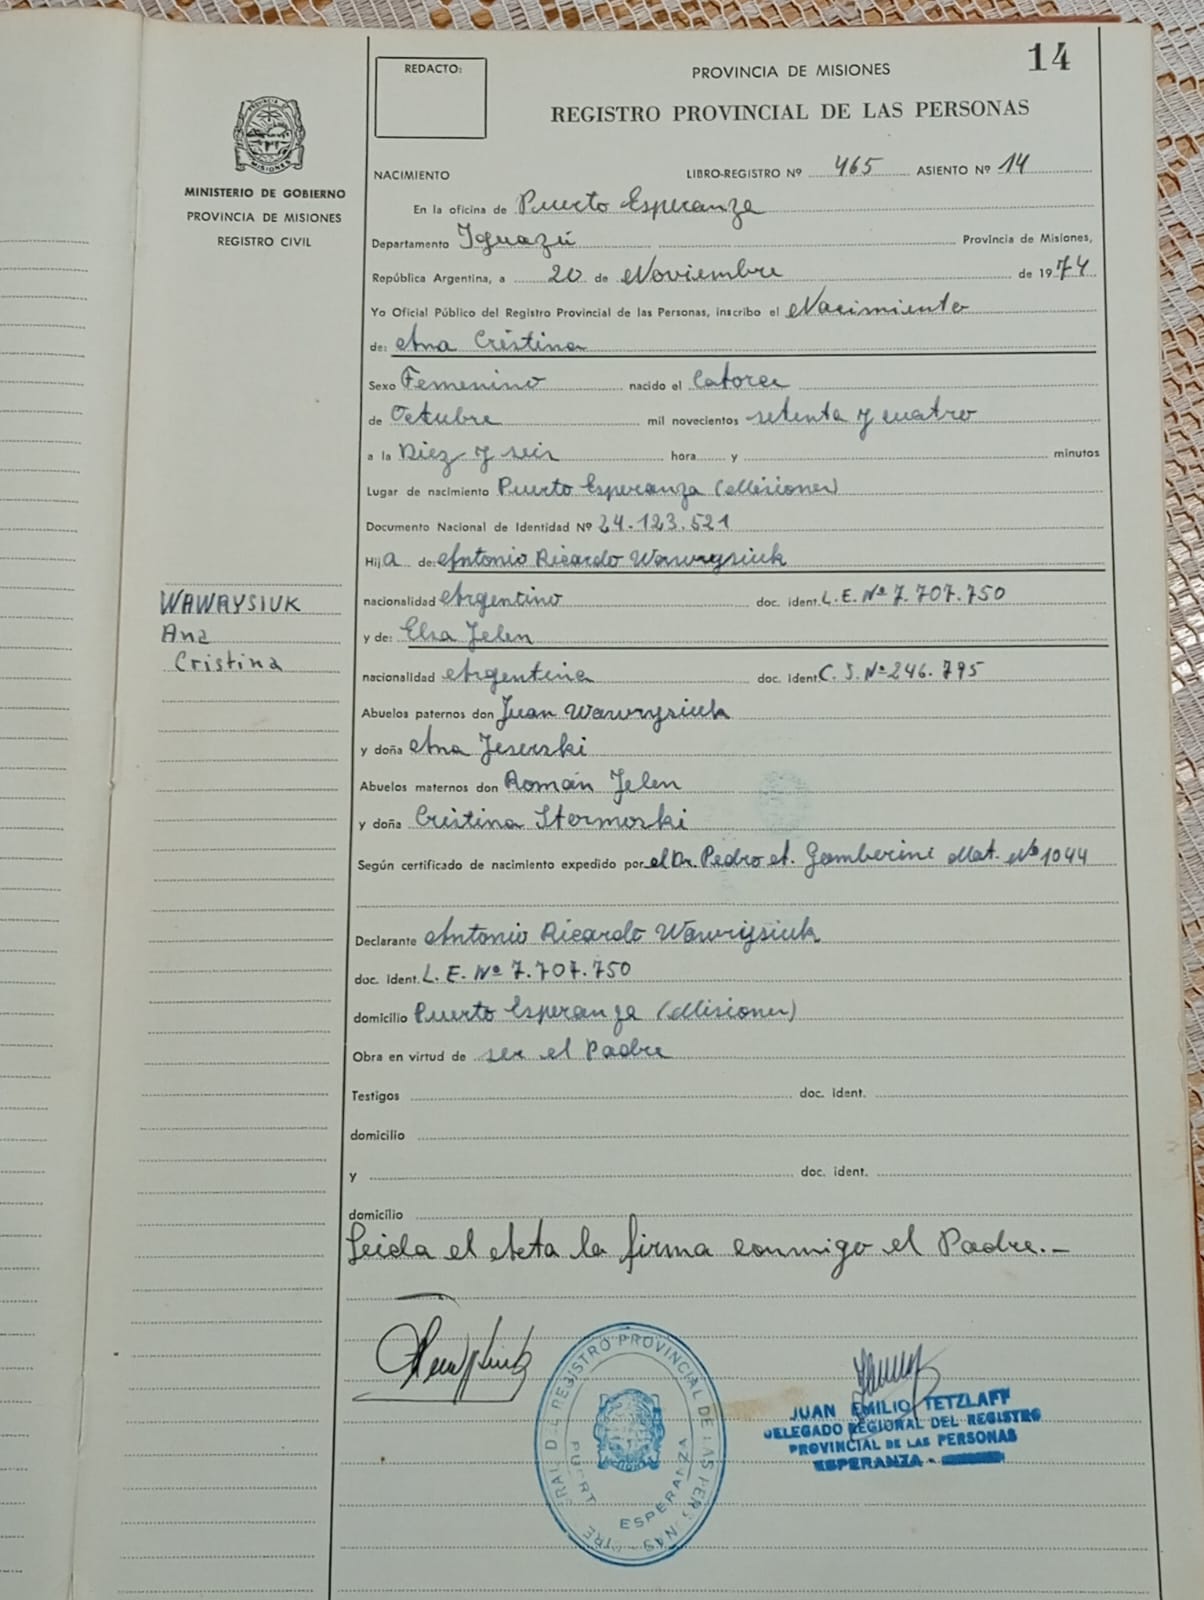 14
REDACTO:
PROVINCIA DE MISIONES
REGISTRO PROVINCIAL DE LAS PERSONAS
MINISTERIO DE GOBIERNO
PROVINCIA DE MISIONES
REGISTRO CIVIL
NACIMIENTO LIBRO-REGISTRO Nº 465 ASIENTO Nº 14
En la oficina de Puerto Esperanza
Departamento Iguazú Provincia de Misiones,
República Argentina, a 20 de Noviembre de 1974
Yo Oficial Público del Registro Provincial de las Personas, inscribo el Nacimiento
de: Ana Cristina
Sexo Femenino nacido el Catorce
de Octubre mil novecientos setenta y cuatro
a la Diez y seis hora y minutos
Lugar de nacimiento Puerto Esperanza (Misiones)
Documento Nacional de Identidad Nº 24.123.521
Hija de: Antonio Ricardo Wawrysiuk
nacionalidad Argentino doc. ident. L.E. Nº 7.707.750
y de: Elsa Jelen
nacionalidad Argentina doc. ident. C.I. Nº 246.795
WAWRYSIUK
Ana
Cristina
Abuelos paternos don Juan Wawrysiuk
y doña Ana Jeserski
Abuelos maternos don Román Jelen
y doña Cristina Stormoski
Según certificado de nacimiento expedido por el Dr. Pedro A. Gamberini Mat. Nº 1044
Declarante Antonio Ricardo Wawrysiuk
doc. ident. L.E. Nº 7.707.750
domicilio Puerto Esperanza (Misiones)
Obra en virtud de ser el Padre
Testigos doc. ident.
domicilio
y doc. ident.
domicilio
Leida el Acta la firma conmigo el Padre.-
REGISTRO PROVINCIAL DE LAS PERSONAS
ESPERANZA
JUAN EMILIO TETZLAFF
DELEGADO REGIONAL DEL REGISTRO
PROVINCIAL DE LAS PERSONAS
ESPERANZA -